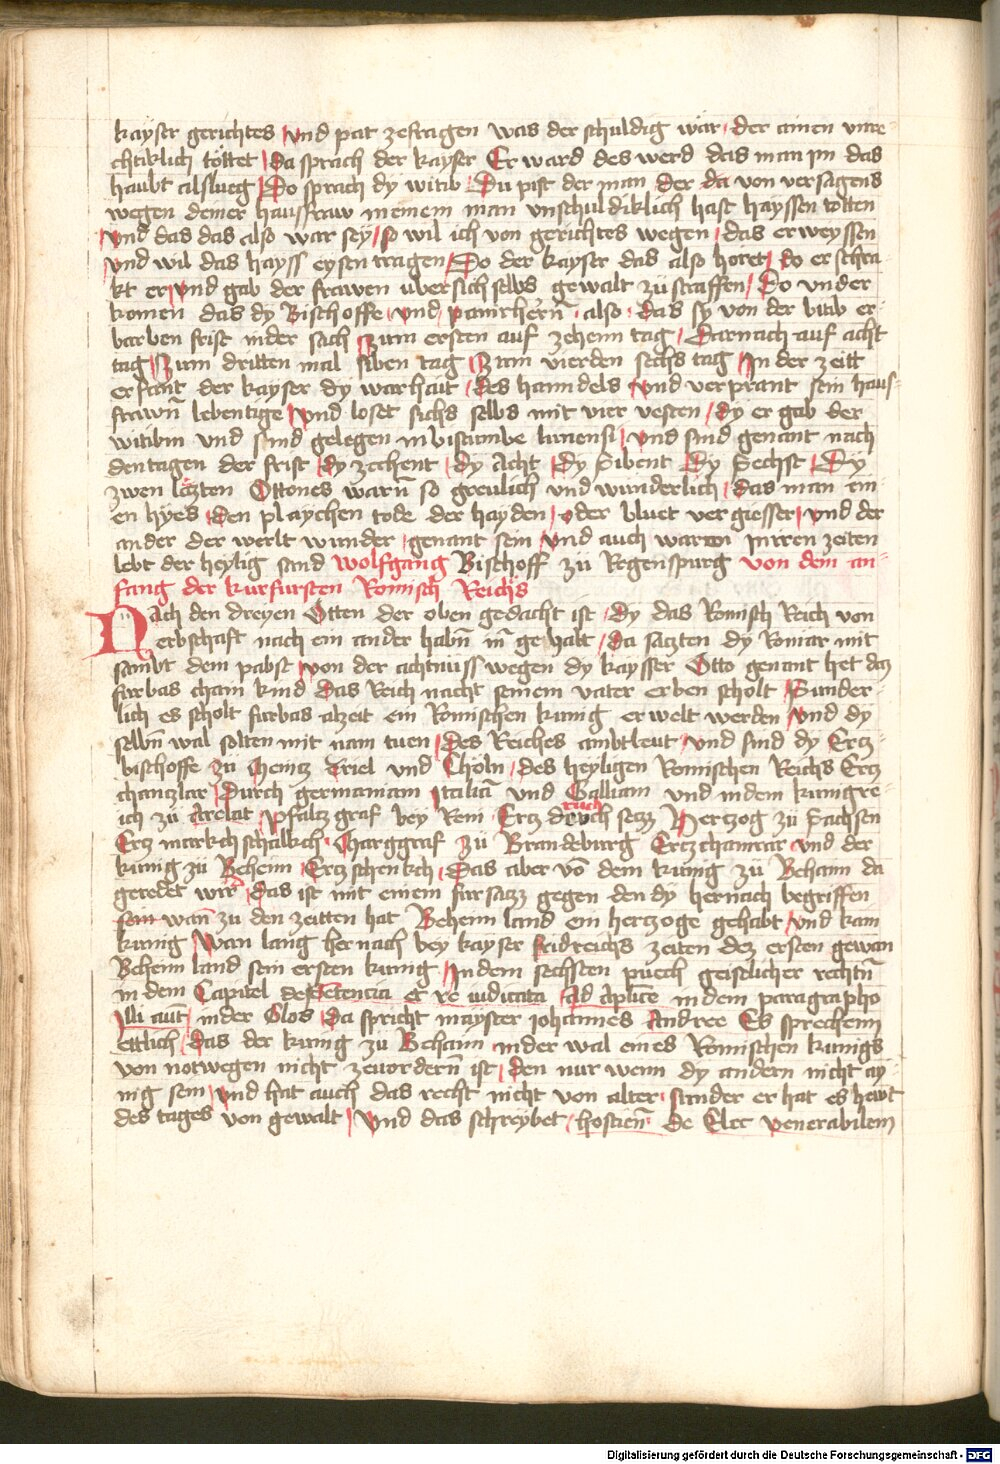 kayser gerichtes vnd pat zefragen was der schuldig wär der ainen vnre
chtiklich töttet Da sprach der kayser Er ward des werd das man im das
haubt abslueg Do sprach dy witib Du pist der man der da von versagens
wegen deiner hausfraw meinem man vnschuldiklich hast hayssen tötten
vnd das das also war sey so wil ich von gerichtes wegen das erweyssen
vnd wil das hayss eysen tragen Do der kayser das also höret do erschra
kt er vnd gab der frawen uber sich selbs gewalt zu straffen Do vnder
komen das dy Bischoffe vnd panirhern also das sy von der witib er
barben frist in der sach Zum ersten auf zehenn tag Darnach auf acht
tag Zum dritten mal siben tag Zum vierden sechs tag In der zeitt
erfant der kayser dy warhait des hanndels vnd verprant sein haus-
frawn lebentige vnd loset sichs selbs mit vier vesten dy er gab der
witibin vnd sind gelegen in bistumbe lunensi vnd sind genant nach
den tagen der frist dy zechent dy Acht dy Sibent Dy Sechst Dy
zwen lëtzten Ottones warn so greulich vnd wunderlich das man ein
en hyes den playchen tode der hayden oder bluet vergiesser vnd der
ander der werlt wunder genant sein vnd auch waren in iren zeiten
lebt der heylig sand Wolfgang Bischoff zü Regenspurg von dem an-
fang der kurfursten Romisch Reichs
Nach den dreyen Otten der oben gedacht ist dy das Romisch Reich von
erbschaft nach ein ander habn in gehabt da saczten dy Romar mit
sambt dem pabst von der achtnuss wegen dy kaysser Otto genant het daz
furbas chain kind das Reich nacht seinem vater erben scholt Sunder-
lich es scholt furbas alzeit ein Romischen kunig erwelt werden vnd dy
selbn wal solten mit nam tuen des Reiches ambtleut vnd sind dy Ercz-
bischoffe zü Meincz Triel vnd Chöln des heyligen Romischen Reichs Ercz
chanczlar Durch germaniam Italiam vnd Galliam vnd in dem kunigre-
ich zu Arelat Pfaltzgraf bey Rein Ercz druchsecz Herczog zü Sachsen
Ercz markch schalkch Marggraf zü Brandeburg Erczchamrar vnd der
kunig zü Beheim Erczschenkch Das aber von dem kunig zü Behaim da
geredet wir das ist mit einem fursacz gegen den dy hernach begriffen
sein wan zu den zeitten hat Beheim land ein herczoge gehabt vnd kain
kunig Wan lang hernach bey kayser fridreichs zeiten dez ersten gewan
Beheim land sein ersten kunig In dem sechsten puech geistlicher rechtn
in dem Capitel de Sentencia et re iudicata Ad aplice in dem paragrapho
Illi aut in der Glos Da spricht mayster Johannes Andree Es sprechenn
ettlich das der kunig zu Behaim in der wal eines Romischen kunigs
von notwegen nicht zeuordern ist den nur wenn dy andern nicht ay-
nig sein vnd hat auch das recht nicht von alter sunder er hat es hewt
des tages von gewalt vnd das schreybet hostien de Elec venerabilem
Digitalisierung gefördert durch die Deutsche Forschungsgemeinschaft - DFG